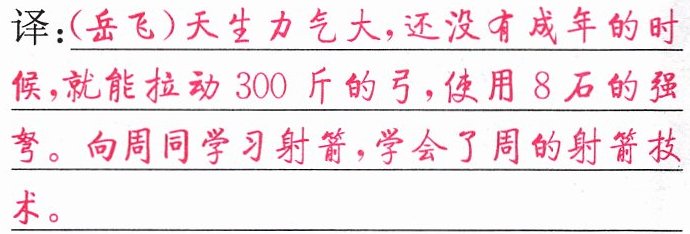 译:(岳飞)天生力气大,还没有成年的时
候,就能拉动 300 斤的弓,使用 8 石的强
弩。向周同学习射箭,学会了周的射箭技
术。